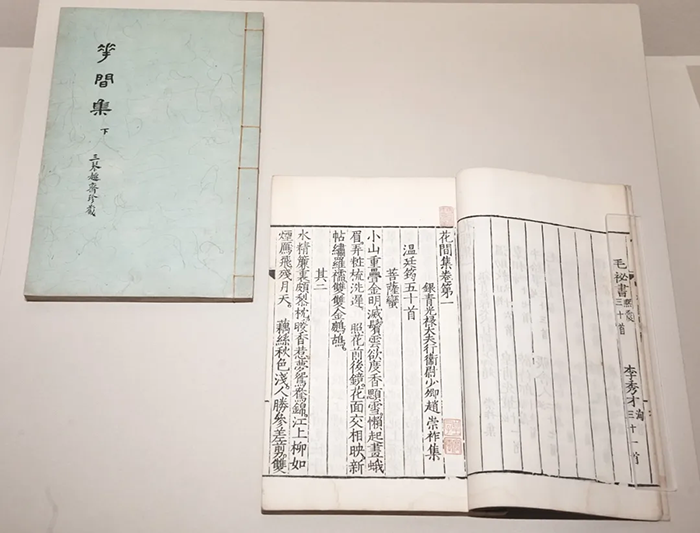 花間集
下
三琴趣齋珍藏
毛祕書熙震
三十首
李秀才珣
三十一首
花間集卷第一
銀青光祿大夫行衛尉少卿趙 崇祚集
溫廷筠五十首
菩薩蠻
小山重疊金明滅鬢雲欲度香顋雪懶起畫蛾
眉弄粧梳洗遲。照花前後鏡花面交相映新
帖繡羅襦雙雙金鷓鴣。
其二
水精簾裏頗黎枕暖香惹夢鴛鴦錦江上柳如
煙鴈飛殘月天。藕絲秋色淺人勝參差剪雙